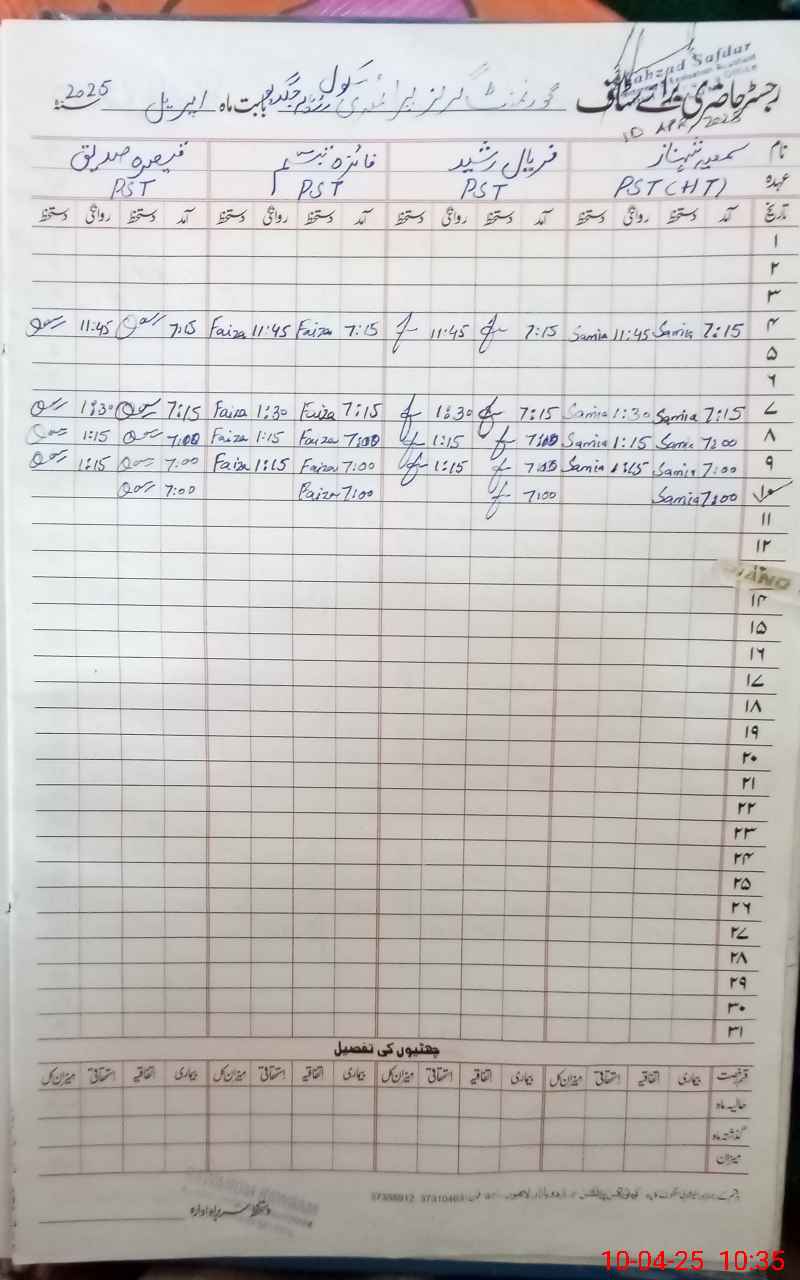 Shahzad Safdar
رجسٹر حاضری برائے سٹاف گورنمنٹ گرلز پرائمری سکول بابت ماہ اپریل سنہ 2025
10 APR 2025
نام سمعیہ شہناز فریال رشید فائزہ تبسم قیصرہ صدیق
عہدہ PST (HT) PST PST PST
تاریخ آمد دستخط روانگی دستخط آمد دستخط روانگی دستخط آمد دستخط روانگی دستخط آمد دستخط روانگی دستخط
۱
۲
۳
۴ 7:15 Samia 11:45 Samia 7:15 11:45 7:15 Faiza 11:45 Faiza 7:15 11:45
۵
۶
۷ 7:15 Samia 1:30 Samia 7:15 1:30 7:15 Faiza 1:30 Faiza 7:15 1:30
۸ 7:00 Samia 1:15 Samia 7:00 1:15 7:00 Faiza 1:15 Faiza 7:00 1:15
۹ 7:00 Samia 1:15 Samia 7:00 1:15 7:00 Faiza 1:15 Faiza 7:00 1:15
۱۰ 7:00 Samia 7:00 7:00 Faiza 7:00
۱۱
۱۲
۱۴
۱۵
۱۶
۱۷
۱۸
۱۹
۲۰
۲۱
۲۲
۲۳
۲۴
۲۵
۲۶
۲۷
۲۸
۲۹
۳۰
۳۱
چھٹیوں کی تفصیل
قسم رخصت بیماری اتفاقیہ استحقاقی میزان کل بیماری اتفاقیہ استحقاقی میزان کل بیماری اتفاقیہ استحقاقی میزان کل بیماری اتفاقیہ استحقاقی میزان کل
حالیہ ماہ
گذشتہ ماہ
میزان
اردو بازار لاہور
دستخط سربراہ ادارہ
10-04-25 10:35